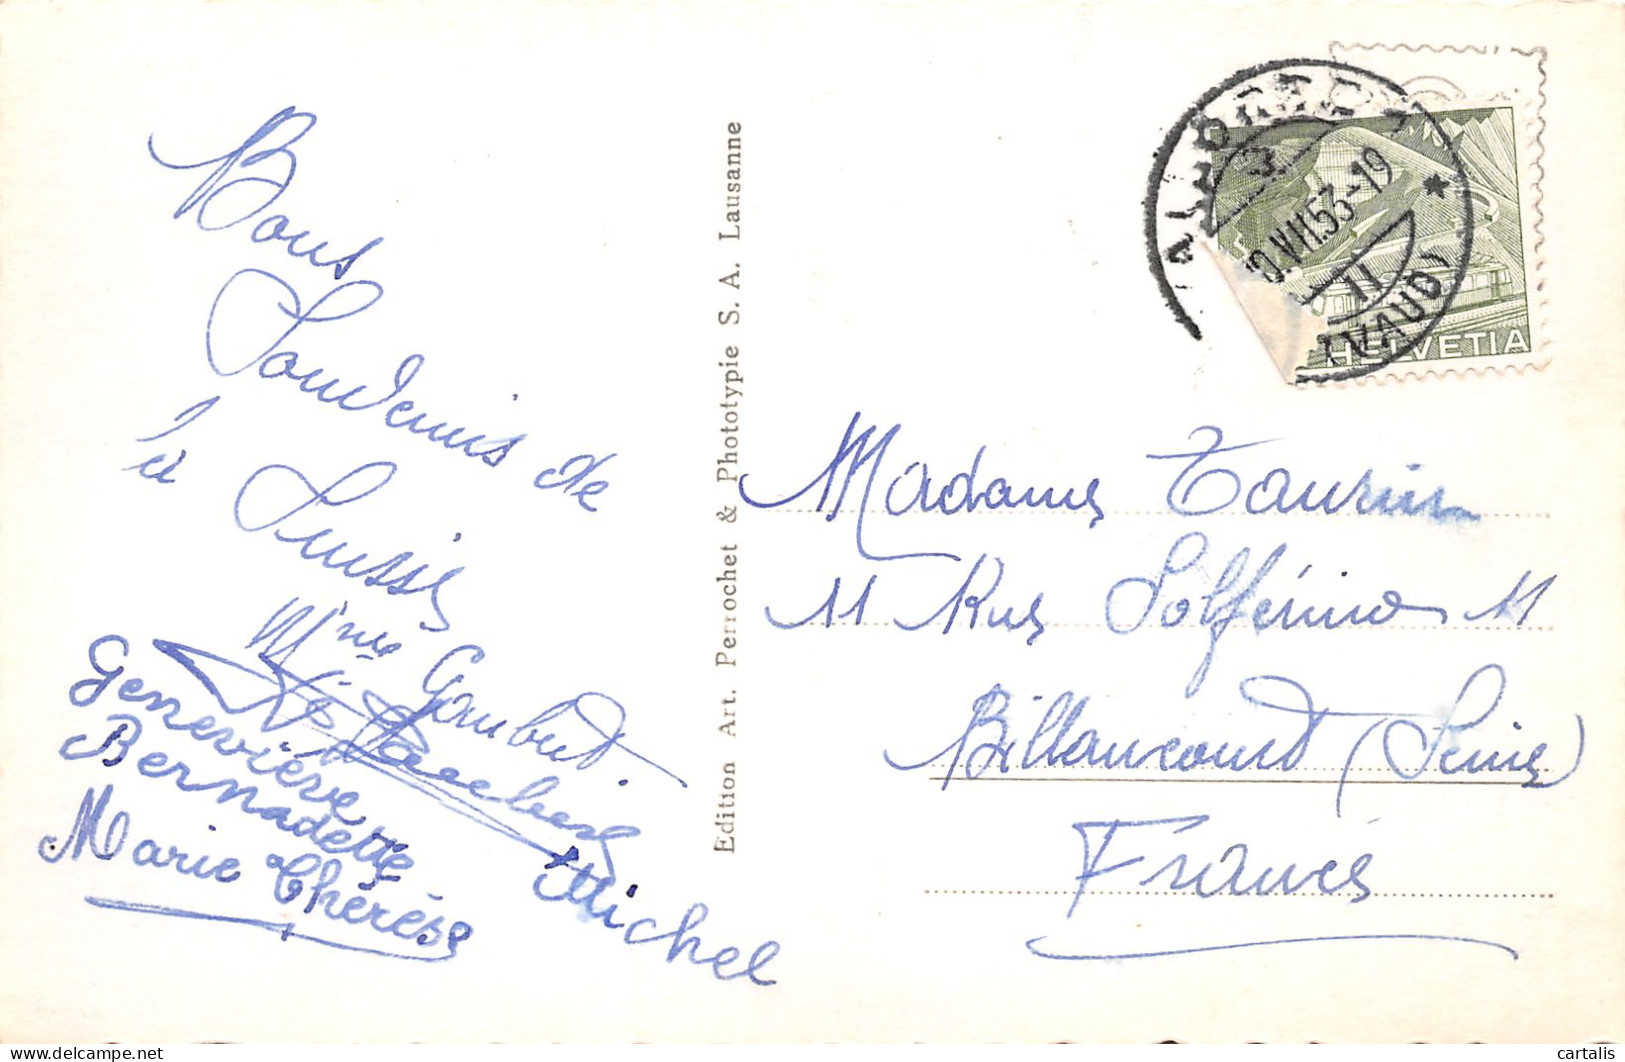 Bons
Souvenirs de
la Suisse
Mme Gaubert
Geneviève
Bernadette
Marie Thérèse
Michel
Edition Art. Perrochet & Phototypie S. A. Lausanne
VALLORBE
VII.53-19
II
(VAUD)
HELVETIA
Madame Taurin
11 Rue Solférino 11
Billancourt (Seine)
France
www.delcampe.net
cartalis